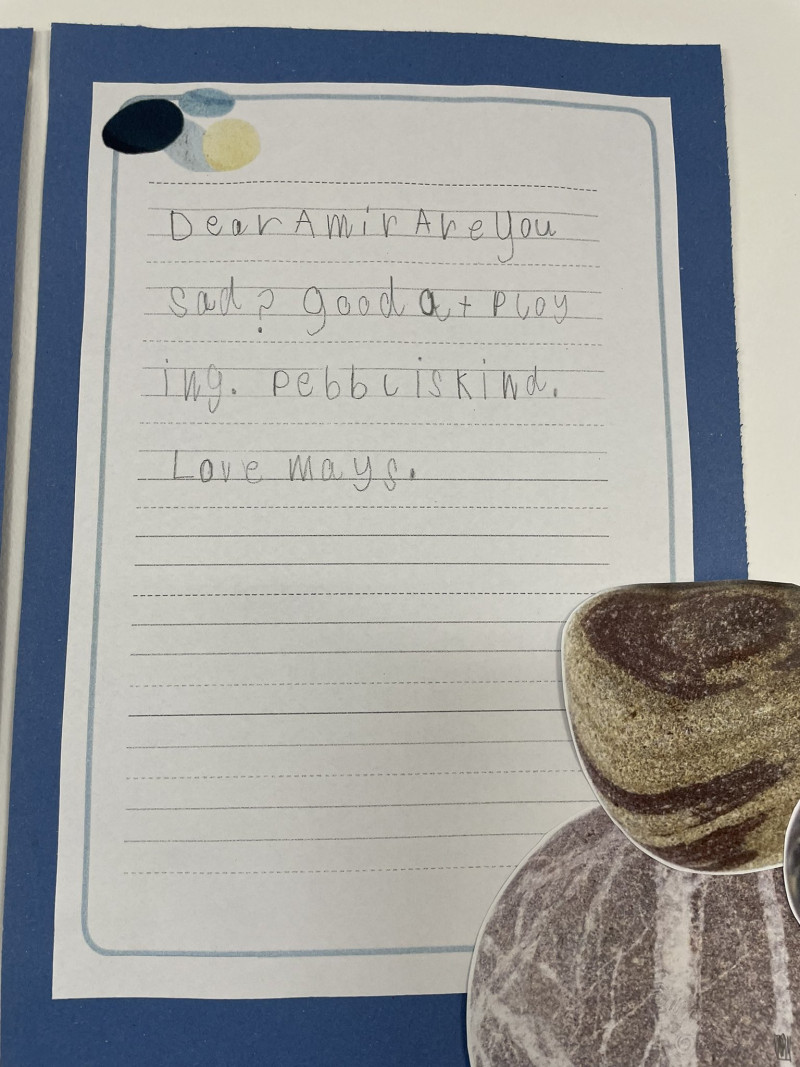 Dear Amir Are you
sad? good at ploy
ing. pebbl is kind.
Love mays.